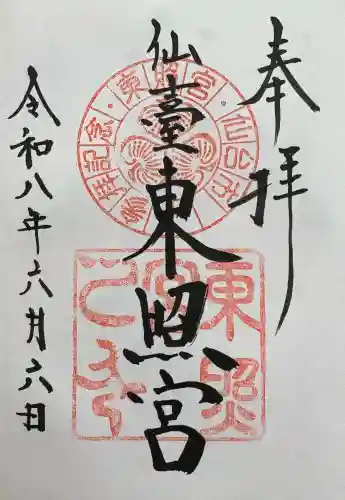 奉拝
仙臺東照宮
令和八年六月六日
東照宮
仙台市
東照宮